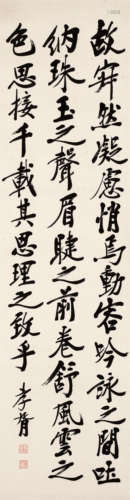 故寂然凝慮悄焉動容吟詠之間吐
納珠玉之聲眉睫之前卷舒風雲之
色思接千載其思理之致乎 李胥